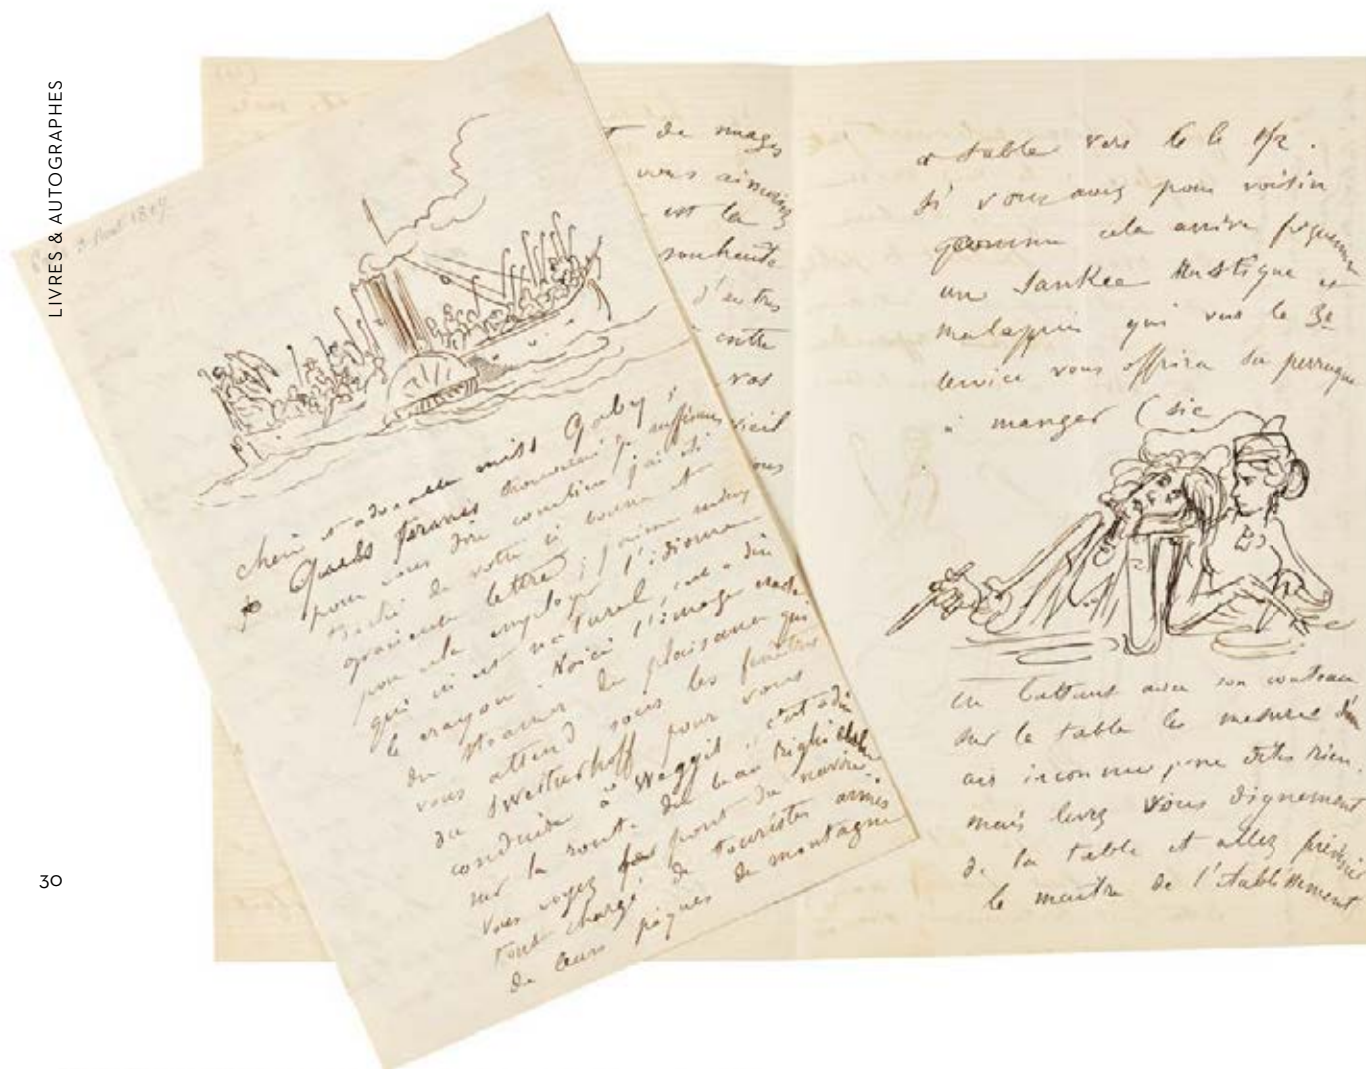 LIVRES & AUTOGRAPHES
30
Août
chère et adorable miss Gaby !
Quels termes trouverai je suffisants
pour vous dire combien j'ai été
touché de votre si bonne et
gracieuse lettre ; j'aime mieux
pour cela employer l'idiome
qui m'est naturel, c'est à dire
le crayon. Voici l'image exacte
du steamer de plaisance qui
vous attend sous les fenêtres
du Sweiturhoff pour vous
conduire à Weggis, c'est à dire
sur la route du beau Righi
vous voyez pont du navire
tout chargé de touristes armés
de leurs piques de montagne
de nuages
vous aimerez
est la
souhaite
d'entres
cette
vos
vieil
ous
à table vers
Si vous avez pour voisin
comme cela arrive
un Yankee rustique et
malappris qui vers le 3e
service vous offrira sa perruque
à manger (sic
en battant avec son couteau
sur la table les mesures d'un
air inconnu ne dites rien.
mais levez vous dignement
de la table et allez prévenir
le maitre de l'établissement